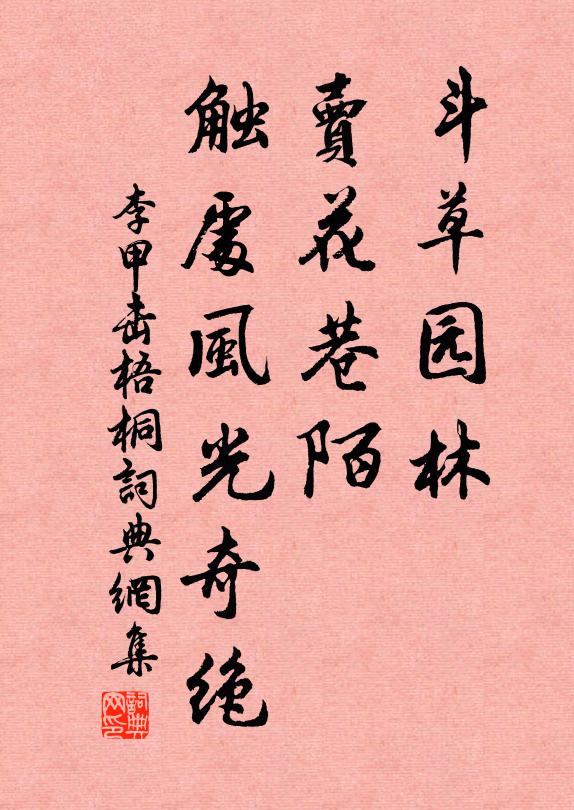 斗草园林
賣花巷陌
触處風光奇绝
李甲击梧桐詞典網集
詞典网印